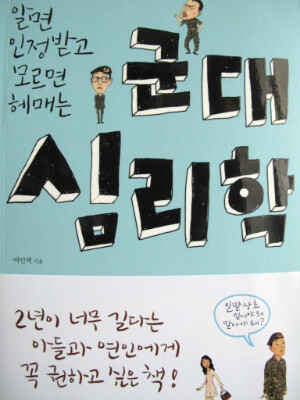 알면
인정받고
모르면
헤매는
군대
심리학
여인택 지음
2년이 너무 길다는
이들과 연인에게
꼭 권하고 싶은 책!
일말상초
믿어야 돼
말아야 돼?